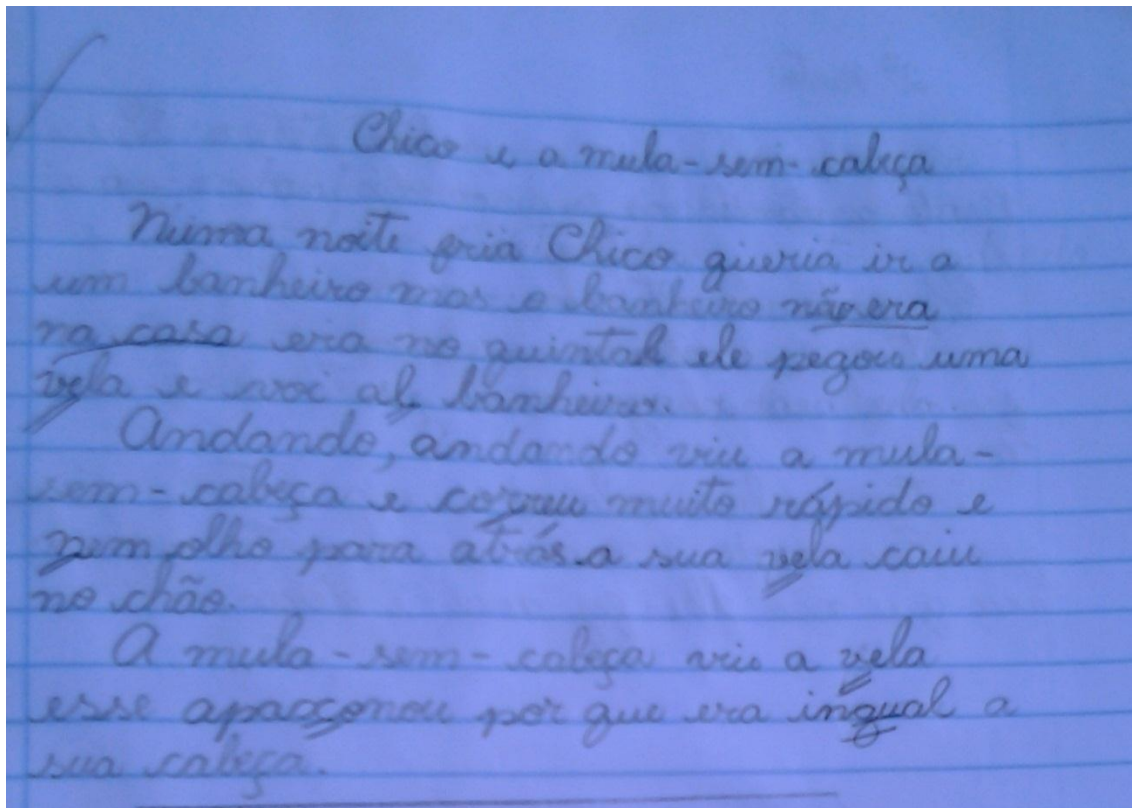 Chico e a mula-sem-cabeça
Numa noite fria Chico queria ir a
um banheiro mas o banheiro não era
na casa era no quintal ele pegou uma
vela e voi al banheiro.
Andando, andando viu a mula-
sem-cabeça e correu muito rápido e
nem olho para atrás a sua vela caiu
no chão.
A mula-sem-cabeça viu a vela
esse apaoçonou por que era ingual a
sua cabeça.